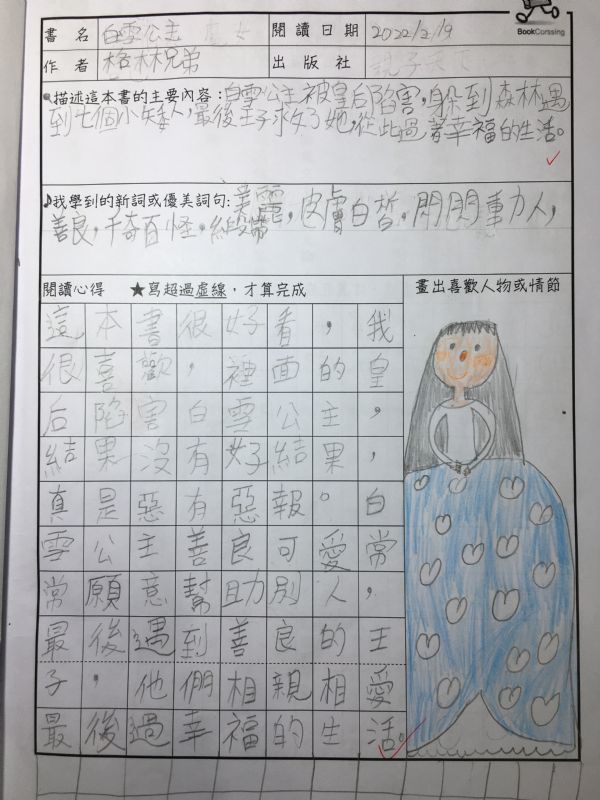 BookCorssing
書名 白雪公主 閱讀日期 2022/2/9
作者 格林兄弟 出版社 親子天下
描述這本書的主要內容:白雪公主被皇后陷害,躲到森林遇
到七個小矮人,最後王子求了她,從此過著幸福的生活。
♪我學到的新詞或優美詞句:美麗,皮膚白皙,閃閃動人,
善良,千奇百怪,緞帶
閱讀心得 ★寫超過虛線,才算完成
畫出喜歡人物或情節
這本書很好看,我
很喜歡,裡面的皇
后陷害白雪公主,
結果沒有好結果,
真是惡有惡報。白
雪公主善良可愛常
常願意幫助別人,
最後遇到善良的王
子,他們相親相愛
最後過幸福的生活。